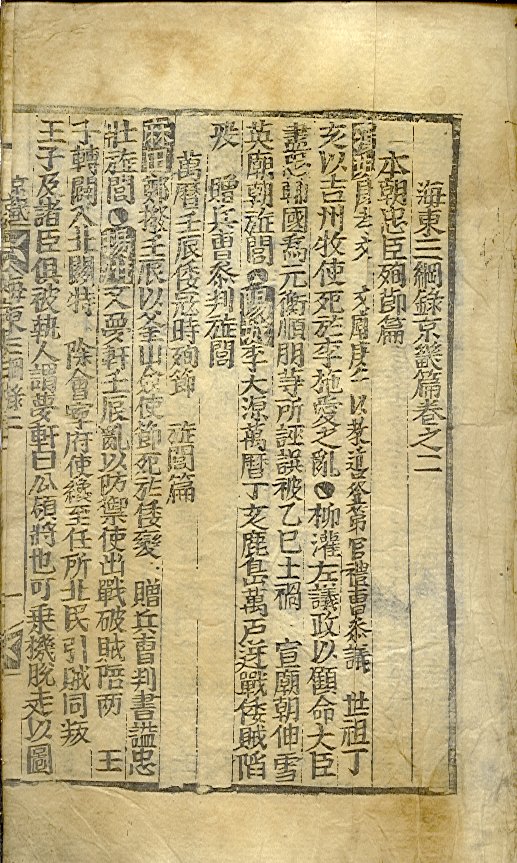 海東三綱錄京畿篇卷之二
本朝忠臣殉節篇
康孝文 文廟庚午以孝道登第官禮曹叅議 世祖丁
亥以吉州牧使死於李施愛之亂 柳灌左議政以顧命大臣
盡忠輔國爲元衡順朋等所誣誤被乙巳士禍 宣廟朝伸雪
英廟朝旌閭 李大源萬曆丁亥鹿島萬戶逆戰倭賊陷
歿 贈兵曹叅判旌閭
萬曆壬辰倭冦時殉節 旌閭篇
麻田鄭撥壬辰以釜山僉使節死於倭變 贈兵曹判書謚忠
壯旌閭 文夢軒壬辰亂以防禦使出戰破賊陪兩 王
子轉鬪入北關特 除會寧府使纔至任所北民引賊同叛
王子及諸臣俱被執人謂夢軒曰公碩將也可乗機脫走以圖
京畿 海東三綱錄二 一